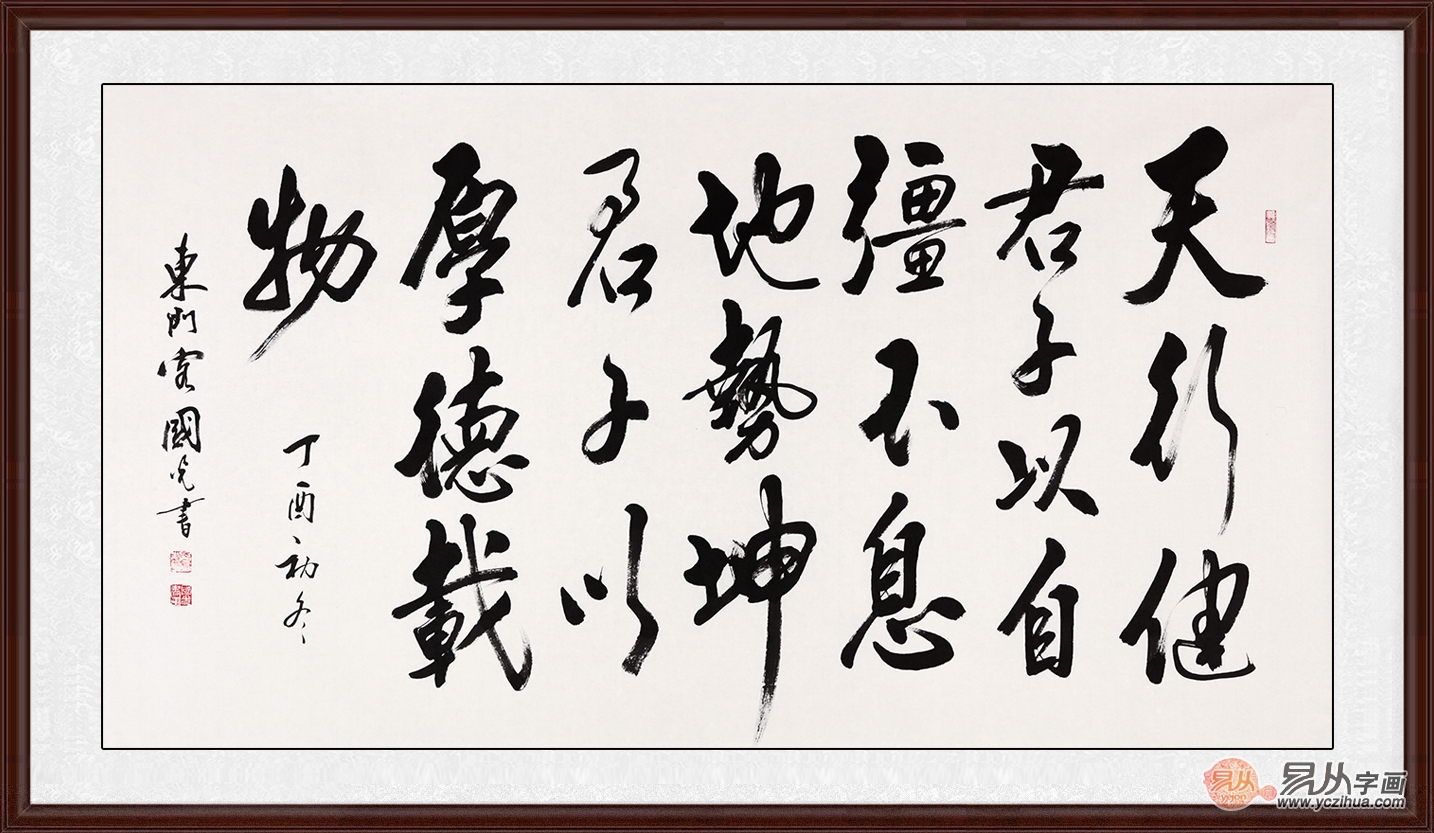 天行健
君子以自
彊不息
地勢坤
君子以
厚德載
物
丁酉初冬
東門客國光書
易从
yigon
易从字画
www.yczihua.com